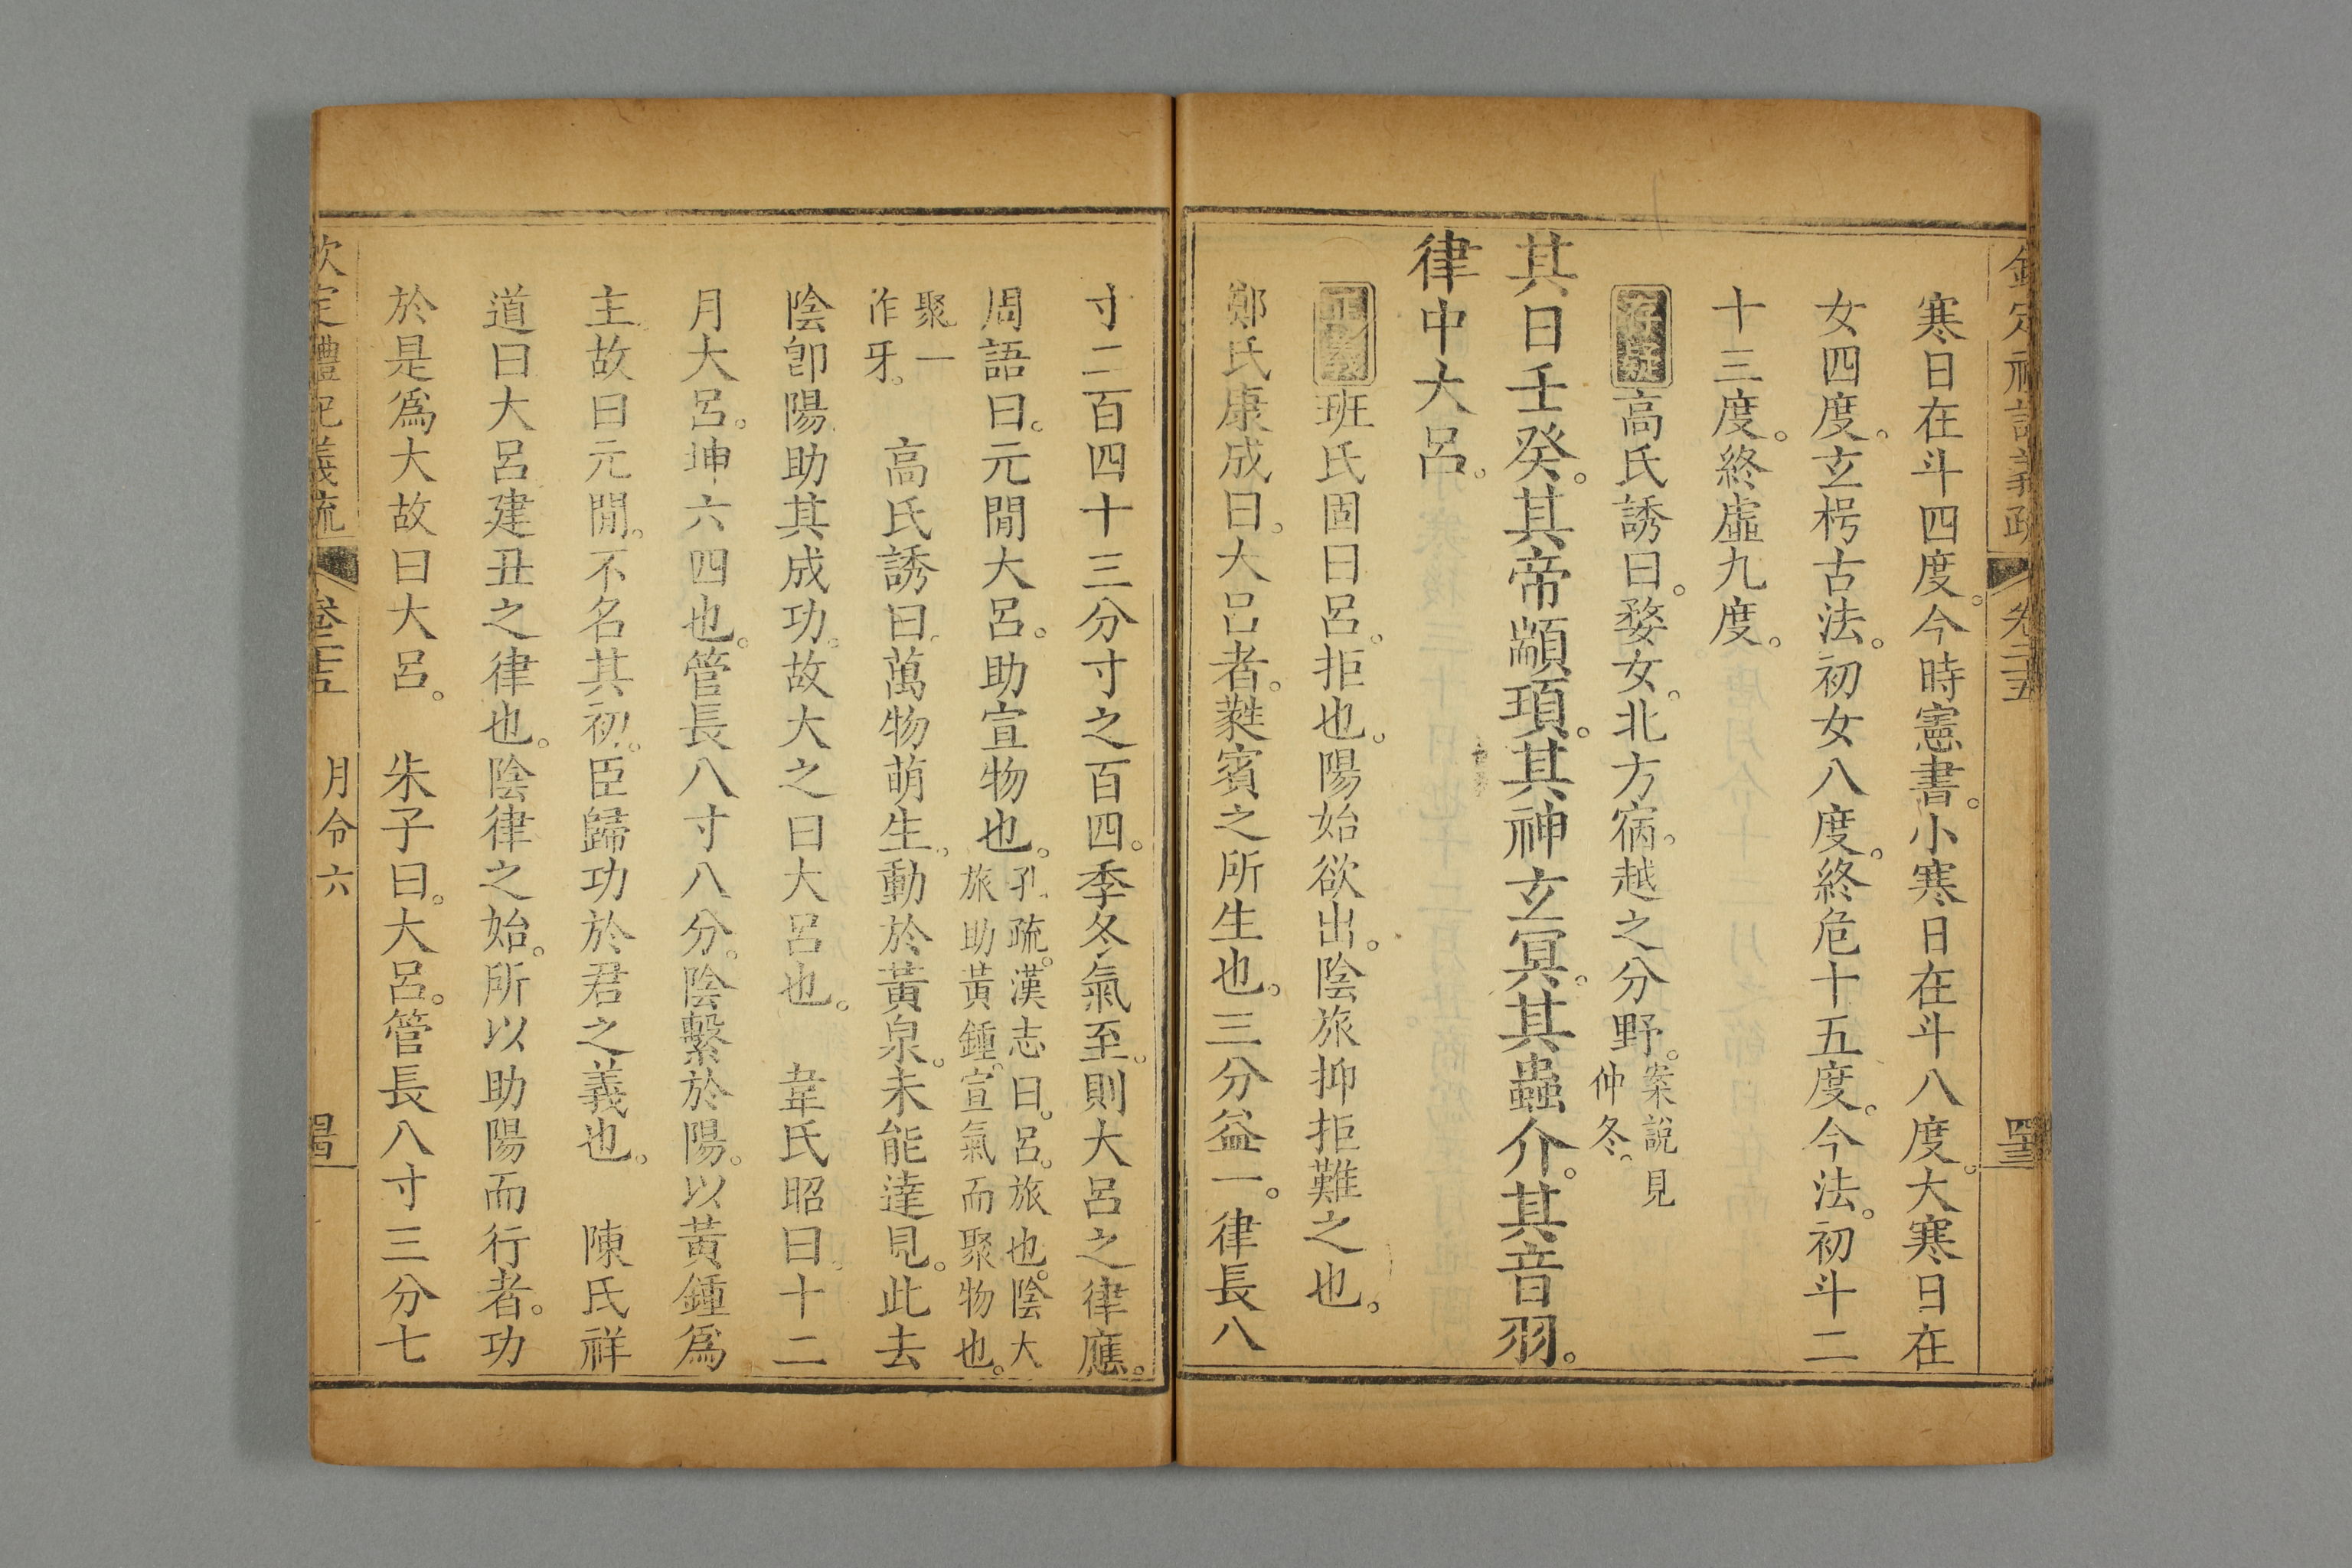 欽定禮記義疏 卷二十五 四三
寒日在斗四度。今時憲書。小寒日在斗八度。大寒日在
女四度。玄枵古法。初女八度。終危十五度。今法。初斗二
十三度。終虛九度。
存疑 高氏誘曰。婺女。北方宿。越之分野。案說見仲冬。
其日壬癸。其帝顓頊。其神玄冥。其蟲介。其音羽。
律中大呂。
正義 班氏固曰呂。拒也。陽始欲出。陰旅抑拒難之也。
鄭氏康成曰。大呂者。蕤賓之所生也。三分益一。律長八
寸二百四十三分寸之百四。季冬氣至。則大呂之律應。
周語曰。元閒大呂。助宣物也。孔疏。漢志曰。呂。旅也。陰大旅助黃鍾。宣氣而聚物也。
聚一作牙。 高氏誘曰。萬物萌生。動於黃泉。未能達見。此去
陰卽陽。助其成功。故大之曰大呂也。 韋氏昭曰。十二
月大呂。坤六四也。管長八寸八分。陰繫於陽。以黃鍾爲
主。故曰元閒。不名其初。臣歸功於君之義也。 陳氏祥
道曰大呂建丑之律也。陰律之始。所以助陽而行者。功
於是爲大故曰大呂。 朱子曰。大呂。管長八寸三分七
欽定禮記義疏 卷二十五 月令六